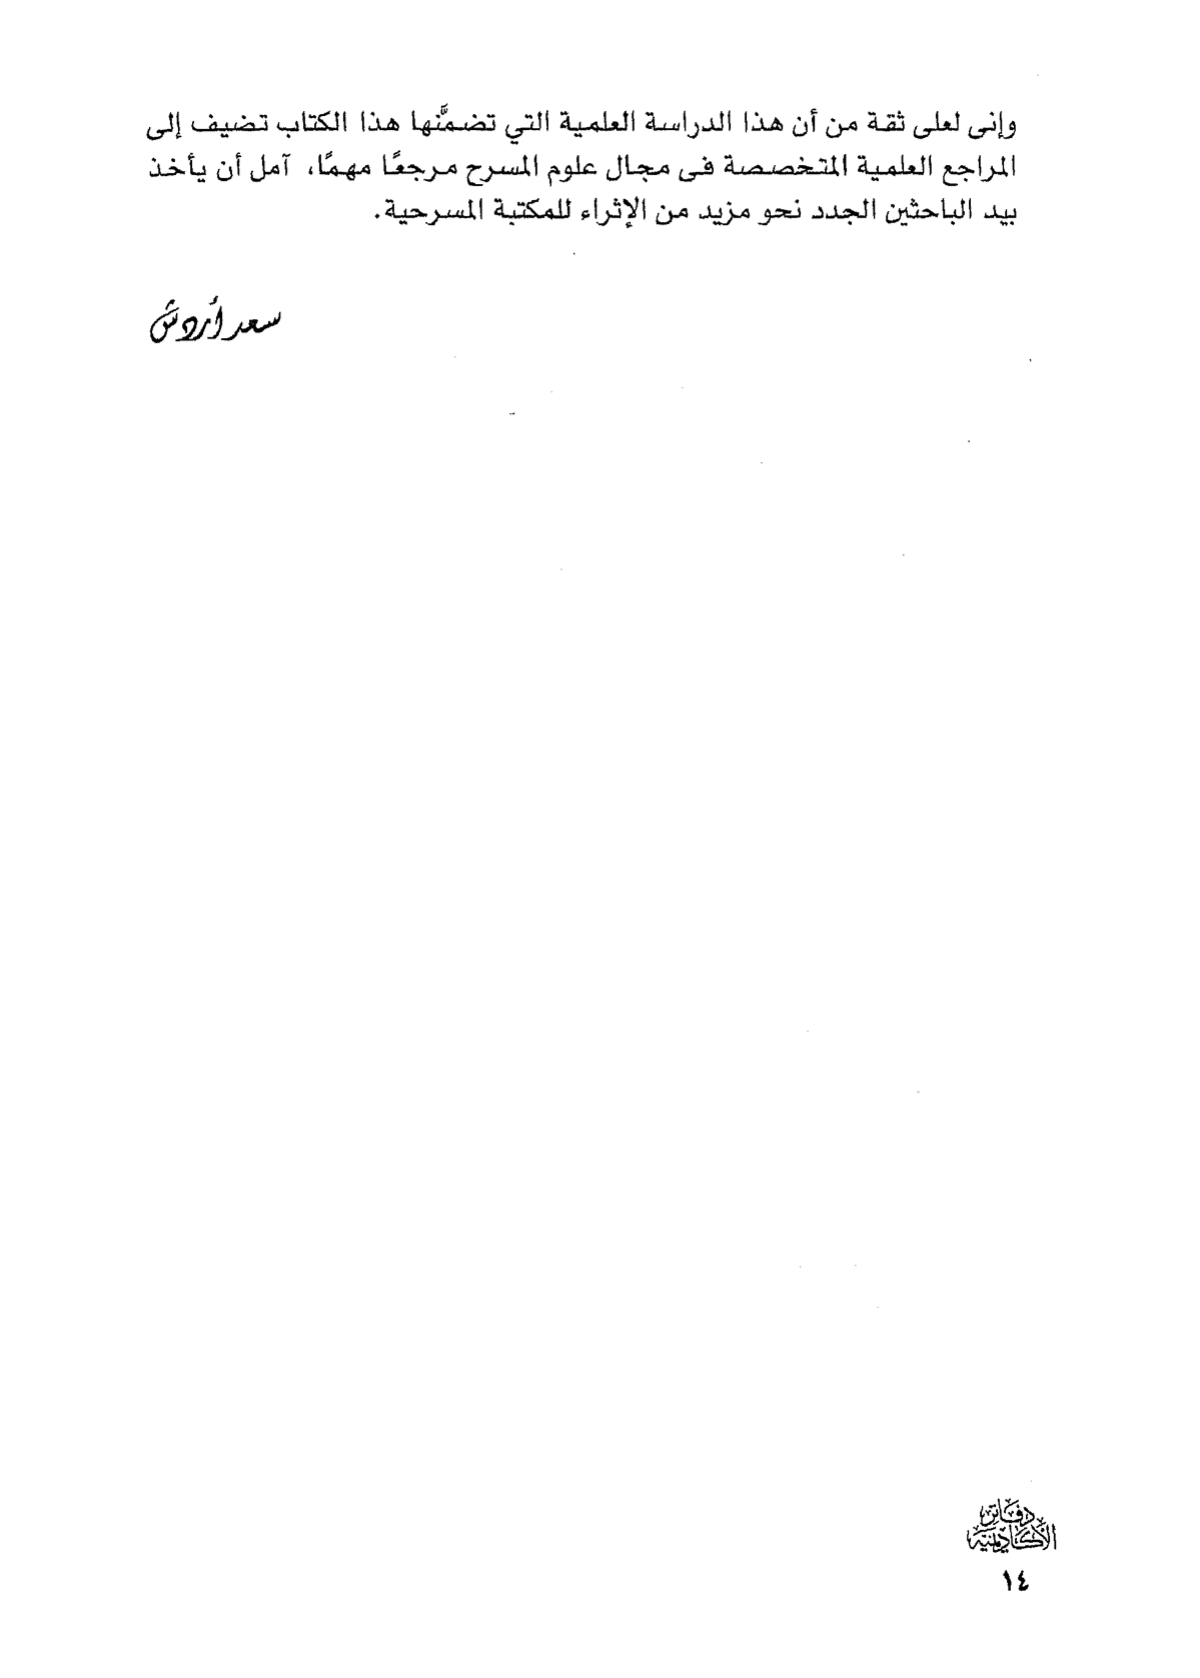 وإنى لعلى ثقة من أن هذا الدراسة العلمية التي تضمَّنها هذا الكتاب تضيف إلى
المراجع العلمية المتخصصة فى مجال علوم المسرح مرجعًا مهمًا، آمل أن يأخذ
بيد الباحثين الجدد نحو مزيد من الإثراء للمكتبة المسرحية.
سعد أردش
دفاتر
الأكاديمية
١٤